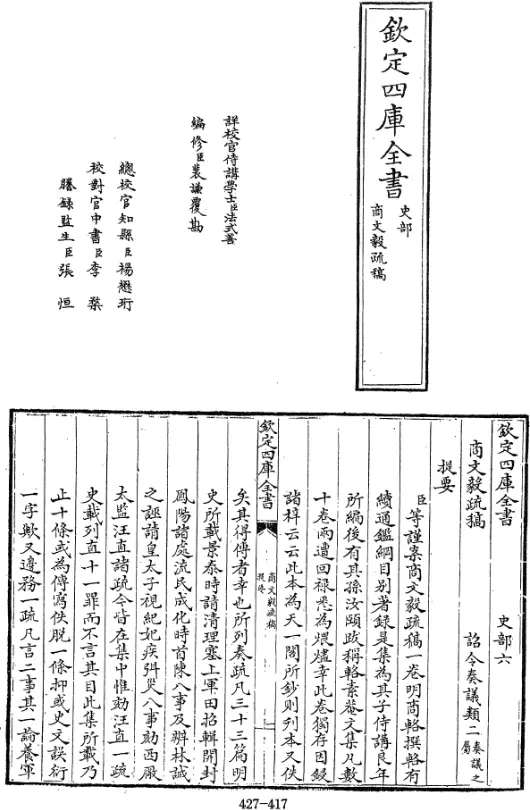 欽定四庫全書
史部
商文毅疏稿
詳校官侍講學士臣法式善
編修臣裴謙覆勘
總校官知縣臣楊懋珩
校對官中書臣李榮
謄錄監生臣張恒
欽定四庫全書
史部六
商文毅疏稿
詔令奏議類二奏議之屬
提要
臣等謹案商文毅疏稿一卷明商輅撰輅有
續通鑑綱目别著錄是集為其子侍講良年
所編後有其孫汝頤跋稱輅素菴文集凡數
十卷兩遭回禄悉為煨燼幸此卷獨存因録
諸梓云云此本為天一閣所鈔則刋本又佚
欽定四庫全書
商文毅疏稿
提要
矣其得傳者幸也所列奏疏凡三十三篇明
史所載景泰時請清理塞上軍田招輯開封
鳳陽諸處流民成化時首陳八事及辨林誠
之誣請皇太子視紀妃疾弭災八事劾西厰
太監汪直諸疏今皆在集中惟劾汪直一疏
史載列直十一罪而不言其目此集所載乃
止十條或為傳寫佚脱一條抑或史文誤衍
一字歟又邊務一疏凡言二事其一論養軍
427-417